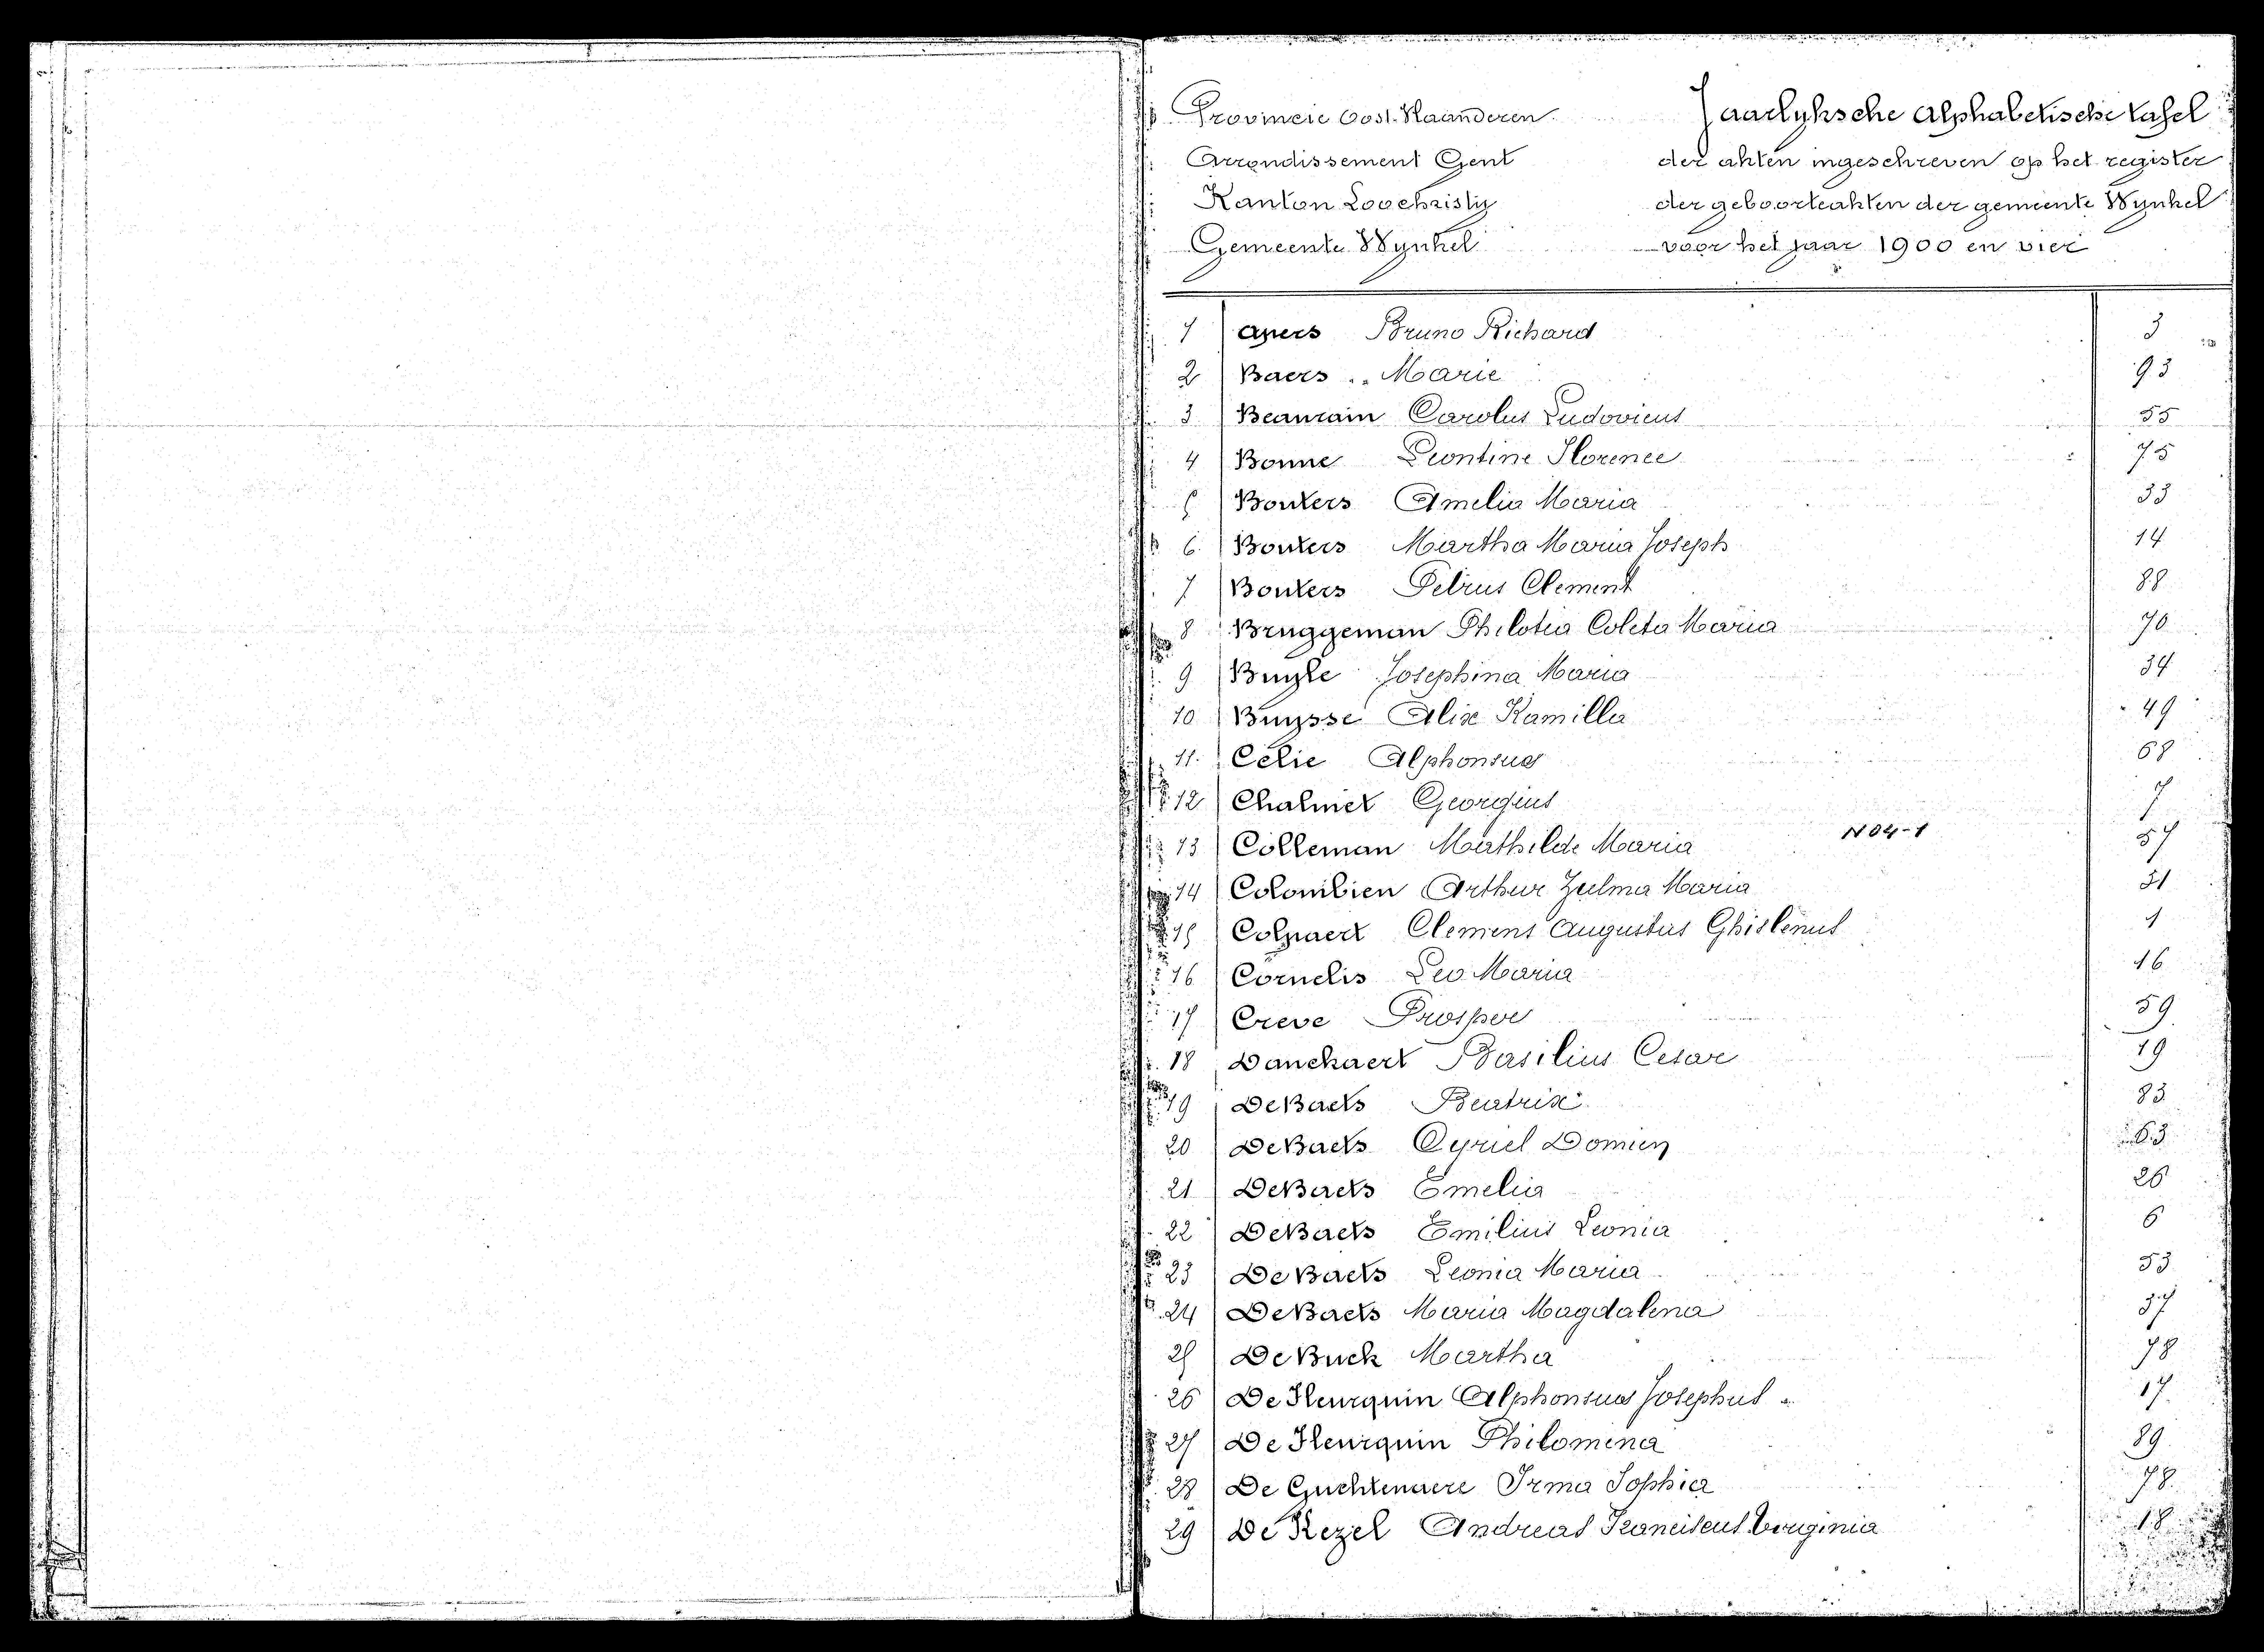 Provincie Oost-Vlaanderen
Arrondissement Gent
Kanton Loochristy
Gemeente Wynkel
Jaarlyksche Alphabetische tafel
der akten ingeschreven op het register
der geboorteakten der gemeente Wynkel
voor het jaar 1900 en vier
1 Apers Bruno Richard 3
2 Baers .. Marie 93
3 Beaurain Carolus Ludovicus 55
4 Bonne Leontine Florence 75
5 Bouters Amelia Maria 33
6 Bouters Martha Maria Joseph 14
7 Bouters Petrus Clement 88
8 Bruggeman Philotea Coleta Maria 70
9 Buyle Josephina Maria 34
10 Buysse Alix Kamilla 49
11 Celie Alphonsus 68
12 Chalmet Georgius 7
13 Colleman Mathilde Maria N04-1 57
14 Colombien Arthur Zulma Maria 31
15 Colpaert Clemens Augustus Ghislenus 1
16 Cornelis Leo Maria 16
17 Creve Prosper 59
18 Danckaert Basilius Cesar 19
19 DeBaets Beatrix 83
20 DeBaets Cyriel Domien 63
21 DeBaets Emelia 26
22 DeBaets Emilius Leonia 6
23 DeBaets Leonia Maria 53
24 DeBaets Maria Magdalena 37
25 De Buck Martha 78
26 De Fleurquin Alphonsus Josephus 17
27 De Fleurquin Philomena 89
28 De Guchtenaere Irma Sophia 78
29 De Kezel Andreas Franciscus Virginia 18